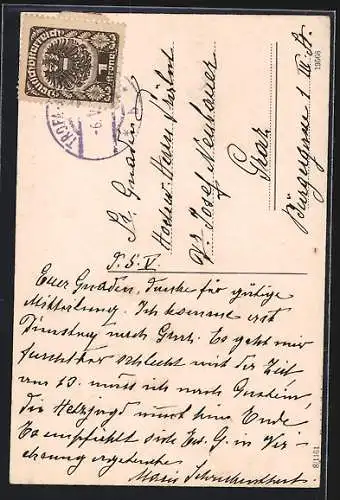 Deutschösterreich
1
Krone
TROFA
-6.V
Sr. Gnaden
Hochw. Herrn Prälat
Dr. Josef Neuhauer
Graz
Bürgergasse 1 III. St.
19506
P. S. V.
Euer Gnaden, danke für gütige
Mittheilung. Ich komme erst
Dienstag nach Graz. Es geht mir
furchtbar schlecht mit der Zeit
am 20. muss ich nach
die Hetzjagd nimmt kein Ende.
Es empfiehlt sich Ew. G. in Ver-
ehrung ergebenste
Maria
8/1161